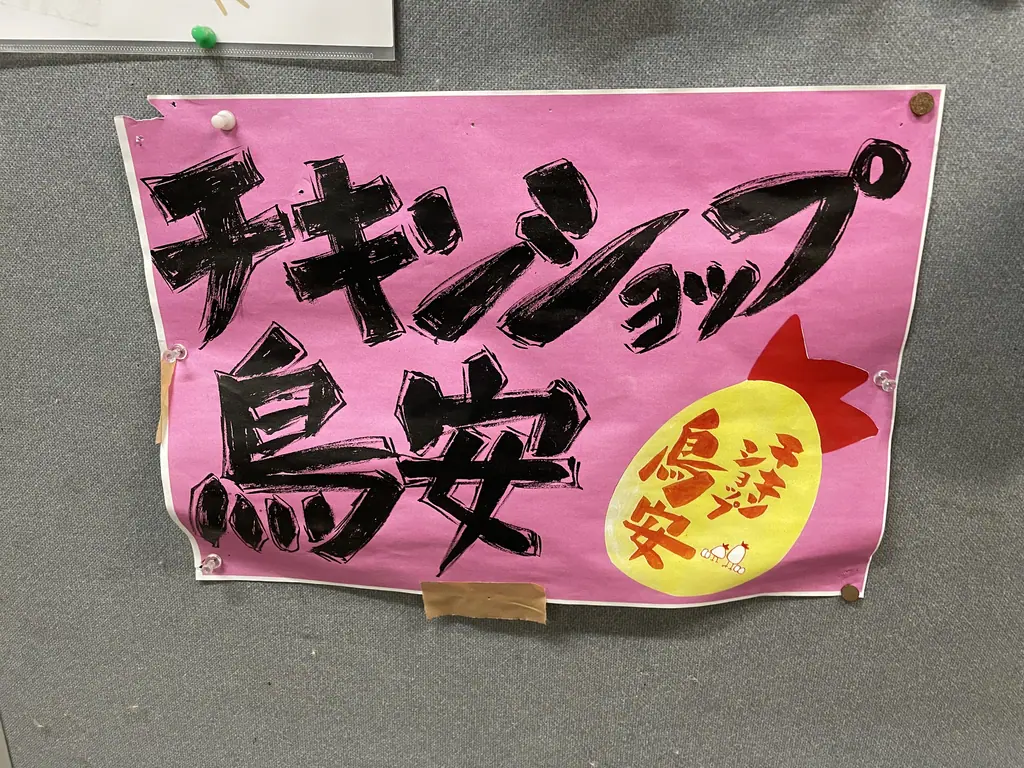 チキンショップ
鳥安
チキン
ショップ
鳥安